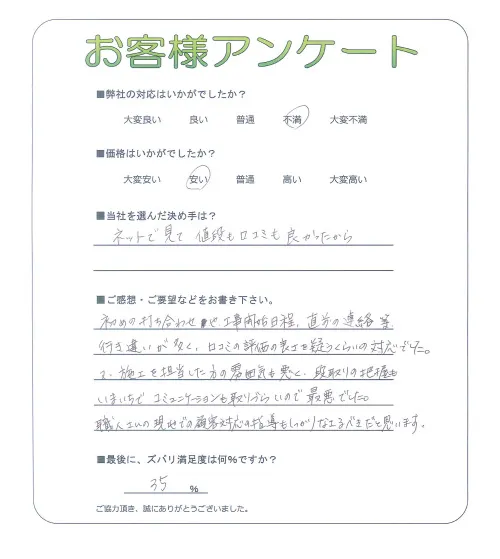 お客様アンケート
■弊社の対応はいかがでしたか?
大変良い 良い 普通 不満 大変不満
■価格はいかがでしたか?
大変安い 安い 普通 高い 大変高い
■当社を選んだ決め手は?
ネットで見て 値段も口コミも良かったから
■ご感想・ご要望などをお書き下さい。
初めの打ち合わせや工事開始日程、直分の連絡等
行き違いが多く、口コミの評価の良さを疑うくらいの対応でした。
施工を担当した方の雰囲気も悪く、段取りの把握も
いまいちで コミュニケーションも取りづらいので最悪でした。
職人さんの現地での顧客対応の指導もしっかりなさるべきだと思います。
■最後に、ズバリ満足度は何%ですか?
35 %
ご協力頂き、誠にありがとうございました。